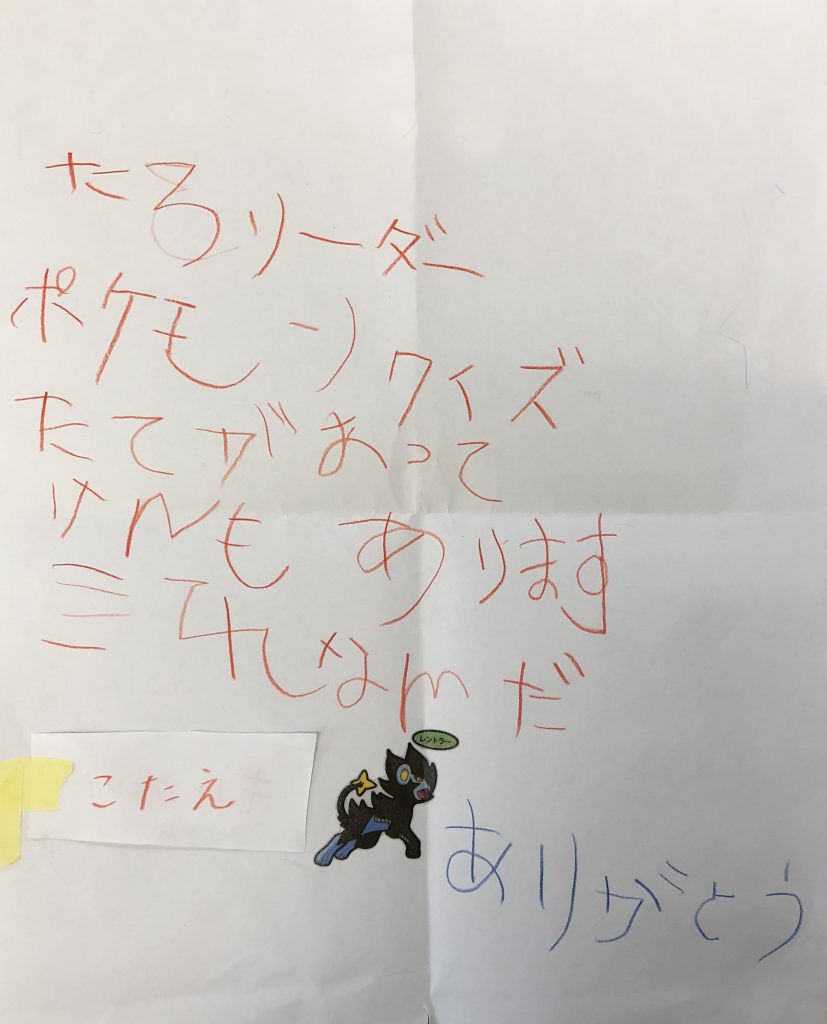 たるリーダー
ポケモン クイズ
たてがあって
けんもあります
それなんだ
レントラー
こたえ
ありがとう